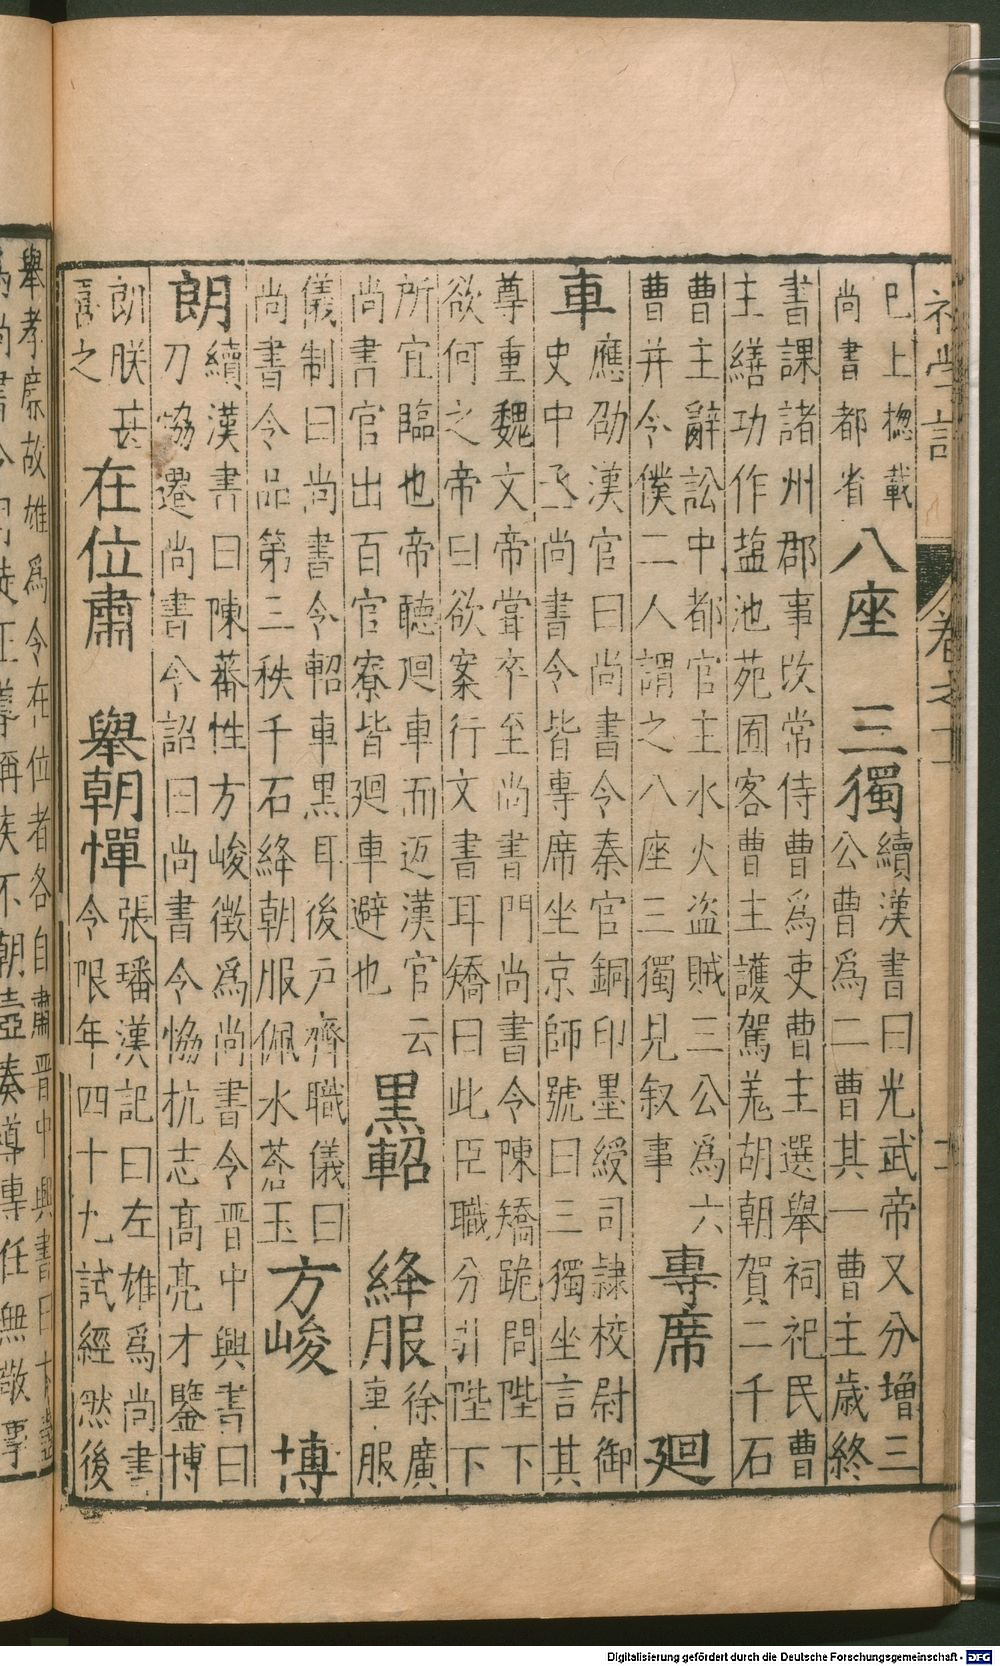 初學記
卷之十一
巳上揔載
尚書都省
八座　三獨
續漢書曰光武帝又分增三
公曹爲二曹其一曹主歲終
書課諸州郡事攺常侍曹爲吏曹主選舉祠祀民曹
主繕功作塩池苑囿客曹主護駕羗胡朝賀二千石
曹主辭訟中都官主水火盗賊三公爲六
曹并令僕二人謂之八座三獨見叙事
專席　廻
車
應劭漢官曰尚書令秦官銅印墨綬司隷校尉御
史中丞尚書令皆專席坐京師號曰三獨坐言其
尊重魏文帝甞卒至尚書門尚書令陳矯跪問陛下
欲何之帝曰欲案行文書耳矯曰此臣職分引陛下
所宜臨也帝聽廻車而返漢官云
尚書官出百官寮皆廻車避也
黒軺　絳服
徐廣
車服
儀制曰尚書令軺車黒耳後户齊職儀曰
尚書令品第三秩千石絳朝服佩水蒼玉
方峻　博
朗
續漢書曰陳蕃性方峻徵爲尚書令晋中興書曰
刀恊遷尚書令詔曰尚書令恊抗志髙亮才鑒博
朗朕甚
喜之
在位肅　舉朝憚
張璠漢記曰左雄爲尚書
令限年四十九試經然後
舉孝廉故雄爲令在位者各自肅晋中興書曰
爲尚書令司徒王導稱疾不朝壼奏導專任無敬
Digitalisierung gefördert durch die Deutsche Forschungsgemeinschaft - DFG